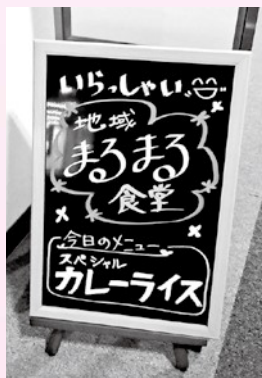 いらっしゃい
地域
まるまる
食堂
今日のメニュー
スペシャル
カレーライス